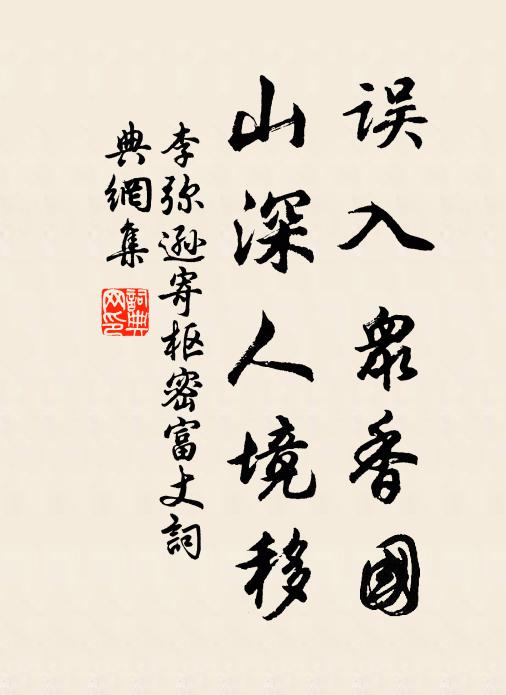 误入眾香國
山深人境移
李弥遜寄枢密富丈詞
典網集
詞典
网印